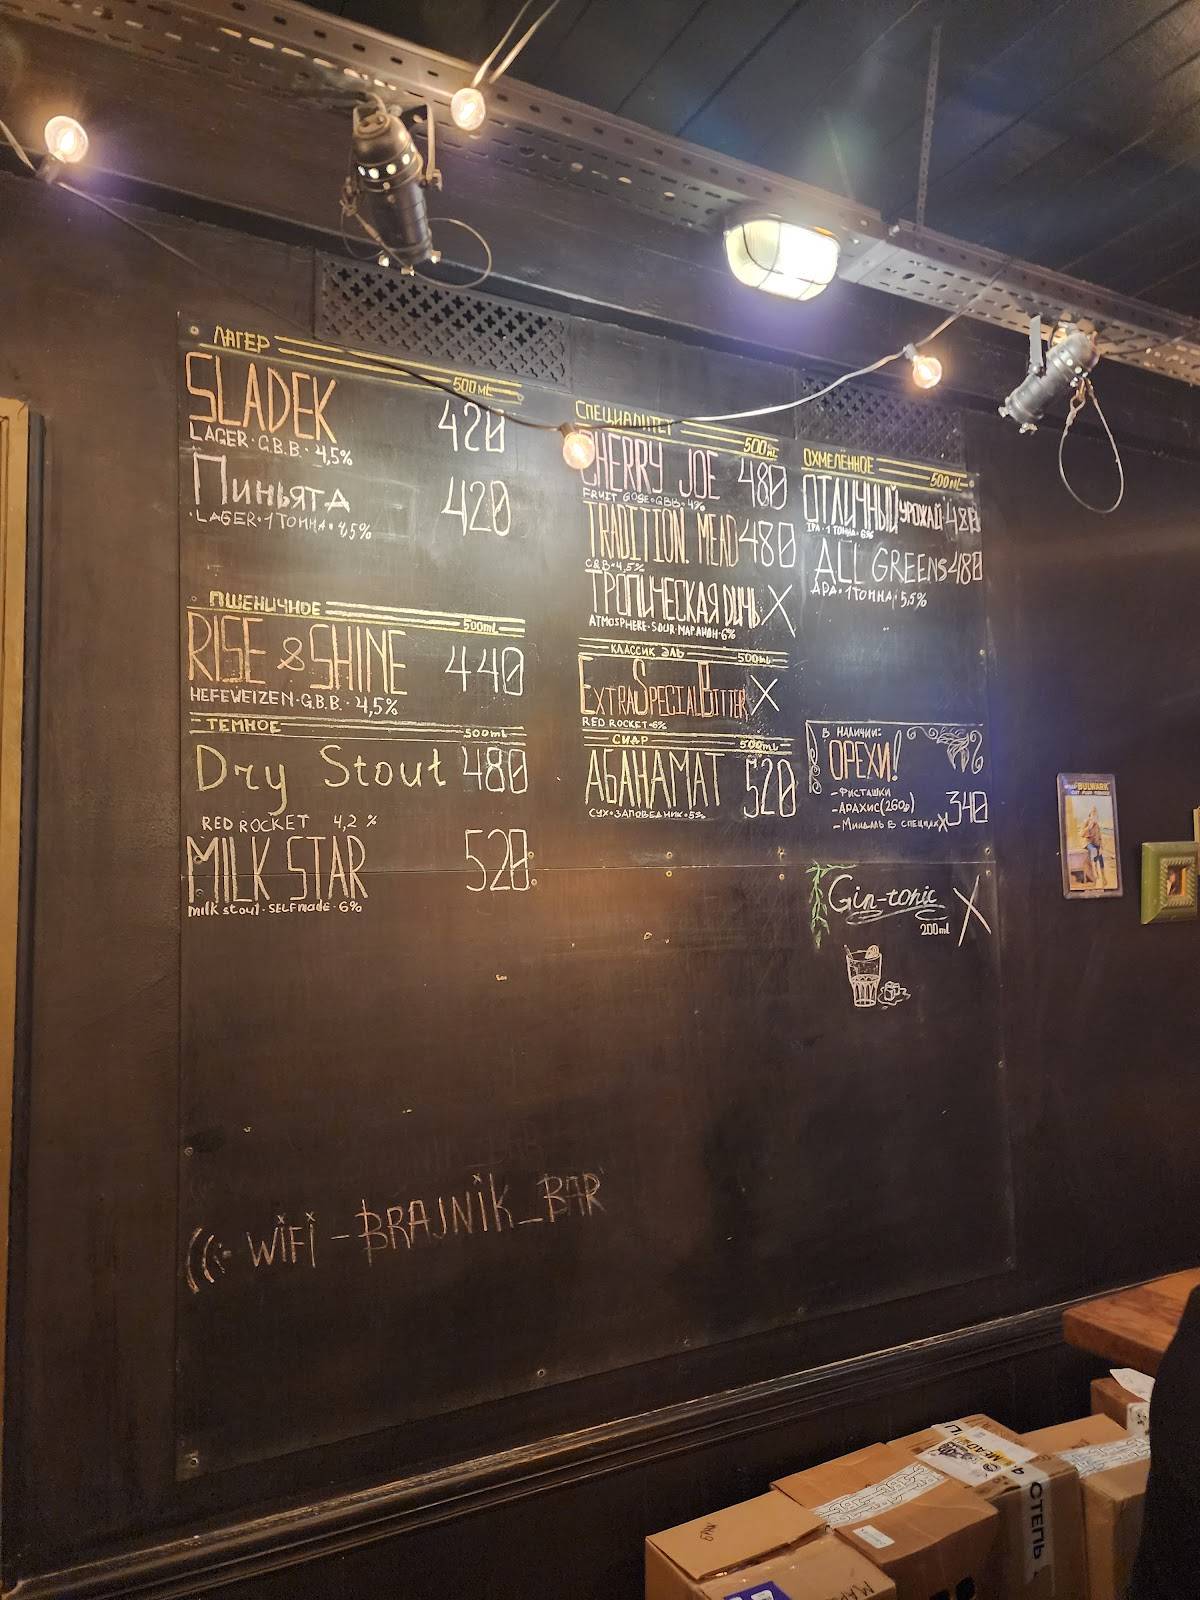 ЛАГЕР
500 ML
SLADEK
420
LAGER · G.B.B. · 4,5%
Пиньята
420
· LAGER · 1 ТОННА · 4,5%
ПШЕНИЧНОЕ
500 ML
RISE & SHINE
440
HEFEWEIZEN · G.B.B. · 4,5%
ТЕМНОЕ
500 ML
Dry Stout
480
RED ROCKET 4,2 %
MILK STAR
520
milk stout · SELFmade · 6%
СПЕЦИАЛИТЕТ
500 ML
CHERRY JOE 480
FRUIT GOSE · GBB · 4%
TRADITION. MEAD 480
4,5%
ТРОПИЧЕСКАЯ ДИЧЬ X
ATMOSPHERE · SOUR · МАРАНОН · 6%
КЛАССИК ЭЛЬ
500ML
EXTRA SPECIAL BITTER X
RED ROCKET · 6%
СИДР
500ML
АБАНАМАТ 520
СУХ · ЗАПОВЕДНИК · 5%
ОХМЕЛЁННОЕ
500 ML
ОТЛИЧНЫЙ УРОЖАЙ 480
IPA · 1 ТОННА · 6%
ALL GREENS 480
APA · 1 ТОННА · 5,5%
В НАЛИЧИИ:
ОРЕХИ!
- ФИСТАШКИ
- АРАХИС (260р)
340
- Миндаль в специях X
Gin-tonic X
200 ml
WIFI - BRAJNIK_BAR
BULWARK
СТЕПЬ